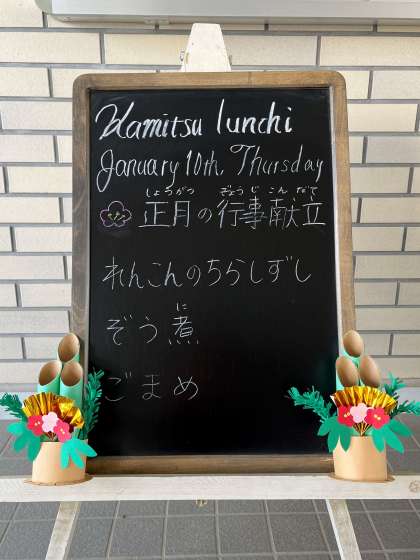 Kamitsu lunchi
January 10th, Thursday
しょうがつ ぎょうじ こんだて
正月の行事献立
れんこんのちらしずし
に
ぞう煮
ごまめ